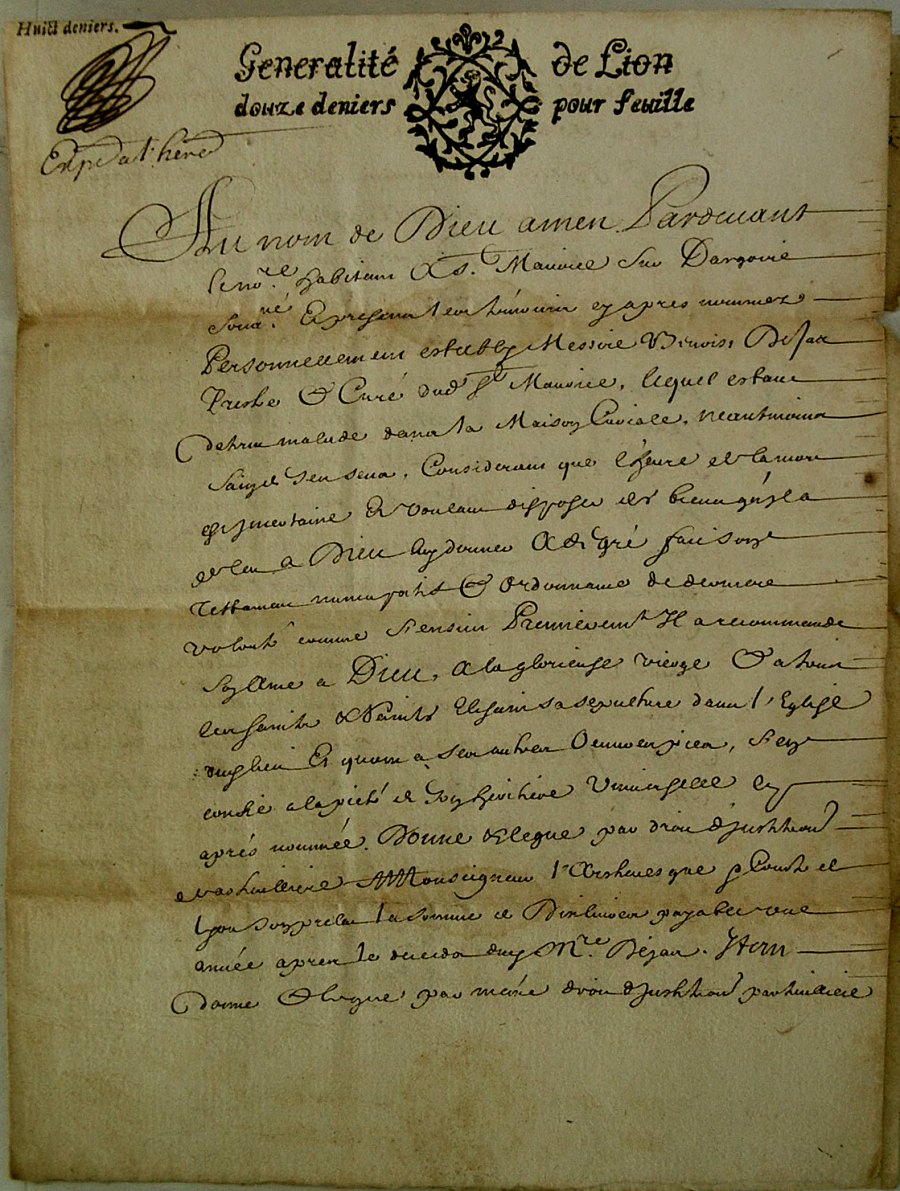 Huict deniers.
Generalité de Lion
douze deniers pour feuille
Exped a l'here
Au nom de Dieu amen Pardevant
le no.re habitant A S.t Maurice sur Dargoire
sous.né Et presents les tesmoins cy apres nommez
Personnellement estably Messire Benoist Dejan
Prestre & Curé dud St Maurice, lequel estant
detenu malade dans la Maison Curiale, neantmoins
sain de ses sens, Considerant que l'heure de la mort
est incertaine Et voulant disposer des biens qu'il a
pleu a Dieu luy donner A de gré fait son
Testament nuncupatif & Ordonnance de derniere
volonté comme s'ensuit Premierem.t Il a recommandé
son Ame a Dieu, a la glorieuse vierge & a tous
les saints & saintes Elisant sa sepulture dans l'Eglise
dud lieu Et quant a ses autres Oeuvres pies, s'en
confie a la pieté de son heritiere Universelle cy
aprés nommée. Donne & legue par droit d'institution
particuliere A Monseigneur l'Archevesque & Comte de
Lyon son prelat la somme de Dix livres payable une
année apres le decedz dud M.re Dejan. Item
donne & legue par mesme droit d'institution particuliere